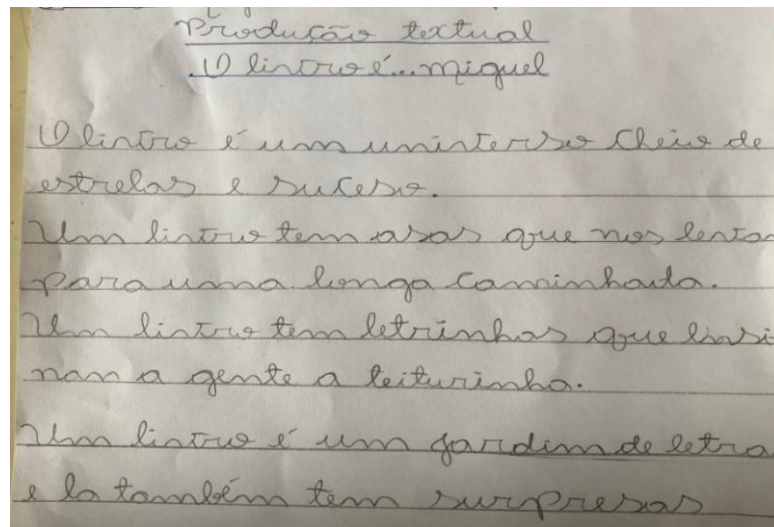 Produção textual
O livro é... miguel
O livro é um universo cheio de
estrelas e suceso.
Um livro tem asas que nos leva
para uma longa caminhada.
Um livro tem letrinhas que ensi
nan a gente a leiturinha.
Um livro é um jardim de letra
e la também tem surpresas